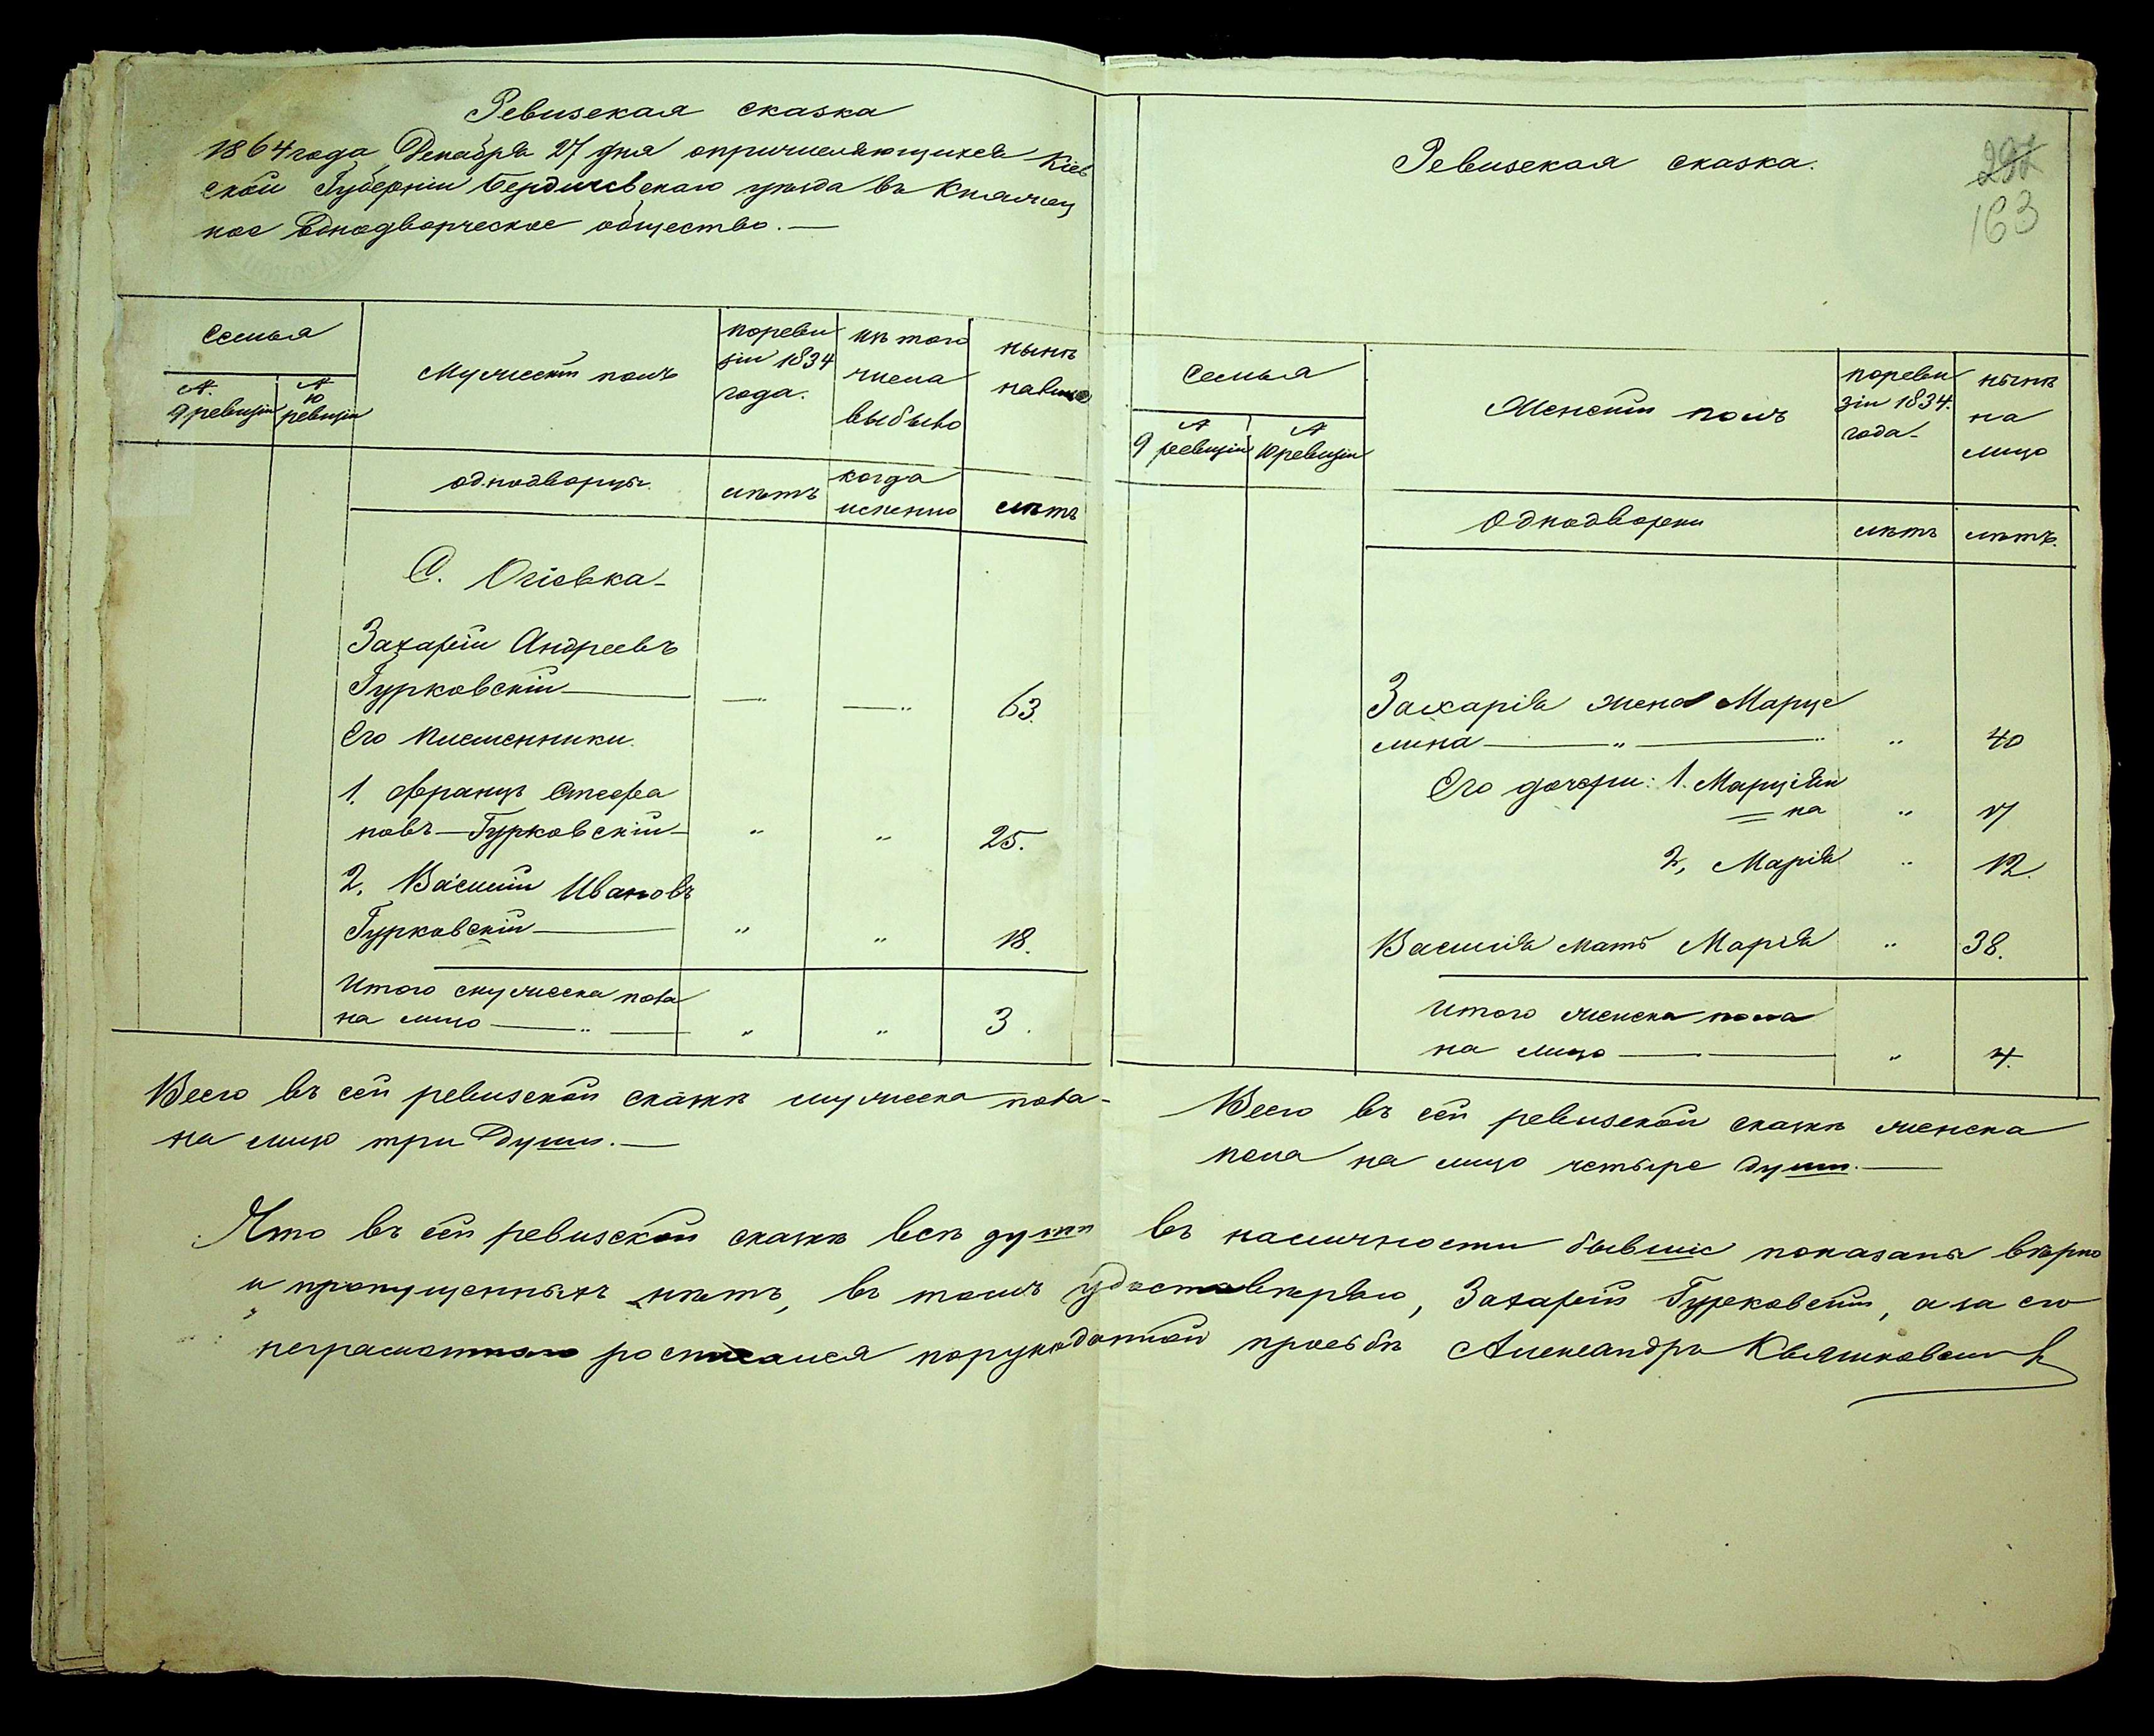 Ревизская сказка
1864 года Декабря 27 дня опричисляющихся Кіев
ской Губерніи Бердичевскаго уѣзда въ
ное Однодворческое общество.—
Семья
№
9 ревизіи
№
10
ревизіи
Мужескій полъ
поревизіи
1834
года.
изъ того
числа
выбыло
нынѣ
налицо
однодворцы.
лѣтъ
когда
именно
лѣтъ
С. Огіевка-
Захарій Андреевъ
Гурковскій — — 63.
Его племенники.
1. Францъ Стефа
новъ—Гурковскій- " " 25.
2. Василій Ивановъ
Гурковскій— " " 18.
Итого мужеска пола
на лицо —"— " " 3.
Всего въ сей ревизской сказкѣ мужеска пола-
на лицо три Души.—
Ревизская сказка.
297
163
Семья
№
9 ревизіи
№
10 ревизіи
Женскій полъ
пореви
зіи 1834.
года-
нынѣ
на
лицо
Однодворки
лѣтъ
лѣтъ.
Захарія жена Марце
лина —"—" " 40
Его дочери: 1. Марціян
= на " 17
2, Марія " 12.
Василія мать Марія " 38.
Итого женска пола
на лицо — — " 4.
Всего въ сей ревизской сказкѣ женска
пола на лицо четыре души.—
Что въ сей ревизской сказкѣ всѣ души въ наличности бывшіе показаны вѣрно
и пропущенныхъ нѣтъ, въ томъ удостовѣряю, Захарій Гурковскій, а за его
неграмотного росписался порукоданной просьбѣ Александръ